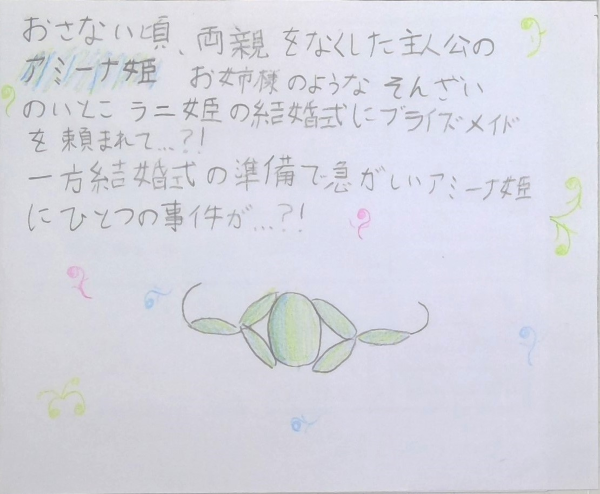 おさない頃、両親をなくした主人公の
アミーナ姫　お姉様のような そんざい
のいとこ ラニ姫の結婚式にブライズメイド
を頼まれて…?!
一方結婚式の準備で急がしいアミーナ姫
にひとつの事件が…?!